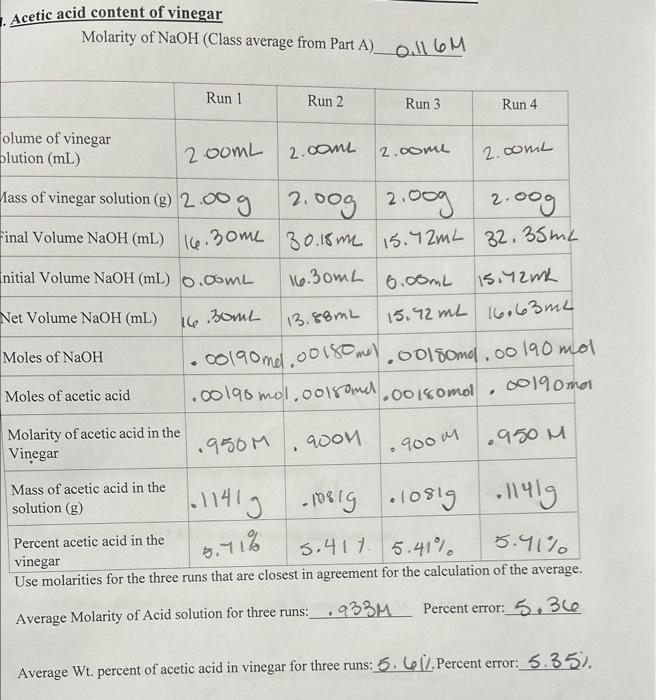 . Acetic acid content of vinegar
Molarity of NaOH (Class average from Part A) 0.116M
Run 1 Run 2 Run 3 Run 4
olume of vinegar
olution (mL) 2.00mL 2.00mL 2.00mL 2.00mL
Mass of vinegar solution (g) 2.00g 2.00g 2.00g 2.00g
Final Volume NaOH (mL) 16.30mL 30.18mL 15.72mL 32.35mL
nitial Volume NaOH (mL) 0.00mL 16.30mL 0.00mL 15.72mL
Net Volume NaOH (mL) 16.30mL 13.88mL 15.72mL 16.63mL
Moles of NaOH .00190mol .00180mol .00180mol .00190mol
Moles of acetic acid .00190mol .00180mol .00180mol .00190mol
Molarity of acetic acid in the
Vinegar .950M .900M .900M .950M
Mass of acetic acid in the
solution (g) .1141g .1081g .1081g .1141g
Percent acetic acid in the
vinegar 5.71% 5.41% 5.41% 5.71%
Use molarities for the three runs that are closest in agreement for the calculation of the average.
Average Molarity of Acid solution for three runs: .933M Percent error: 5.36
Average Wt. percent of acetic acid in vinegar for three runs: 5.61%. Percent error: 5.35%.